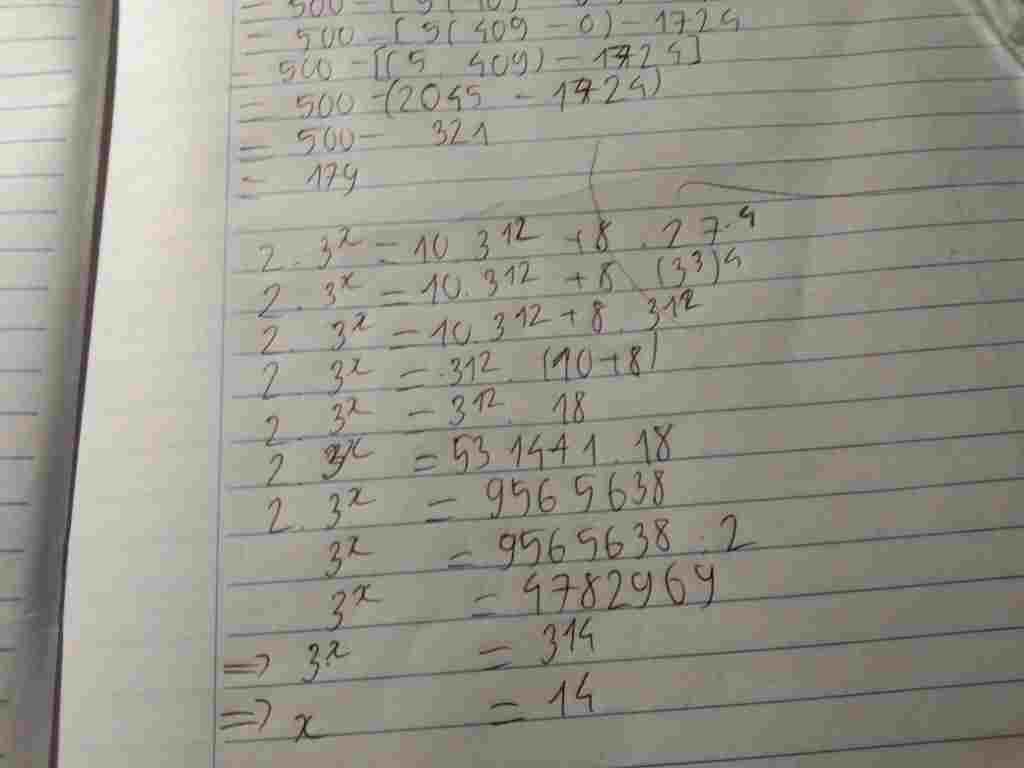 = 500 - [5(409 - 0) - 1724
= 500 - [(5. 409) - 1724]
= 500 - (2045 - 1724)
= 500 - 321
= 179
2. 3ˣ = 10. 3¹² + 8 . 27.⁴
2. 3ˣ = 10. 3¹² + 8 (3³)⁴
2. 3ˣ = 10. 3¹² + 8. 3¹²
2. 3ˣ = 3¹². (10+8)
2. 3ˣ = 3¹². 18
2. 3ˣ = 531441. 18
2. 3ˣ = 9565638
3ˣ = 9565638 : 2
3ˣ = 4782969
=> 3ˣ = 3¹⁴
=> x = 14